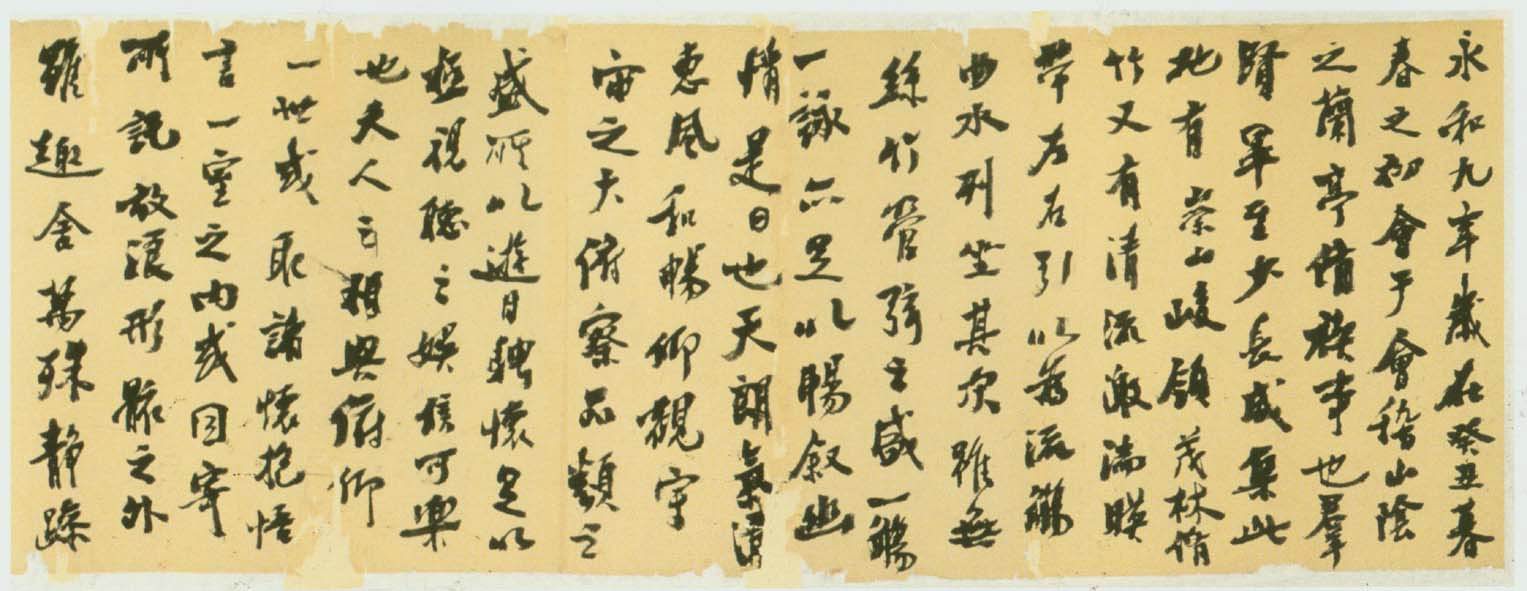 永和九年歲在癸丑暮
春之初會于會稽山陰
之蘭亭脩稧事也羣
賢畢至少長咸集此
地有崇山峻領茂林脩
竹又有清流激湍暎
帶左右引以為流觴
曲水列坐其次雖無
絲竹管弦之盛一觴
一詠亦足以暢叙幽
情是日也天朗氣清
惠風和暢仰觀宇
宙之大俯察品類之
盛所以遊目騁懷足以
極視聽之娛信可樂
也夫人之相與俯仰
一世或取諸懷抱悟
言一室之內或因寄
所託放浪形骸之外
雖趣舍萬殊靜躁